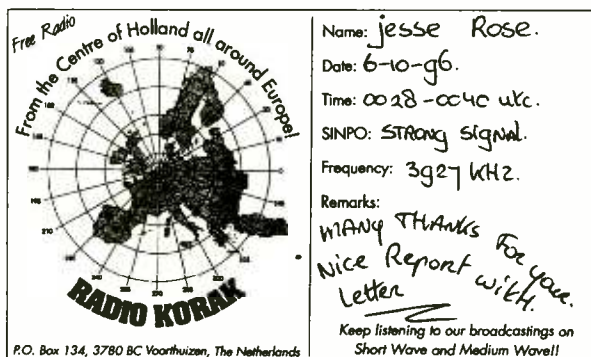 Free Radio
From the Centre of Holland all around Europe!
RADIO KORAK
P.O. Box 134, 3780 BC Voorthuizen, The Netherlands
Name: jesse Rose.
Date: 6-10-96.
Time: 0028-0040 utc.
SINPO: STRONG SIGNAL.
Frequency: 3927 KHz.
Remarks:
MANY THANKS For your
Nice Report with.
Letter
Keep listening to our broadcastings on
Short Wave and Medium Wave!!